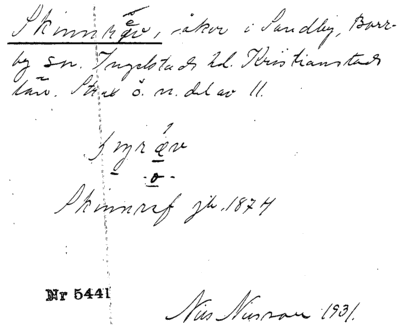 Skinnräv, åkor i Sandby, Borr-
by sn. Ingelstads hd. Kristianstads
län. Strax ö. n. del av 11.
Skinnräf jb. 1874
Nr 5441
Nils Nilsson 1931.